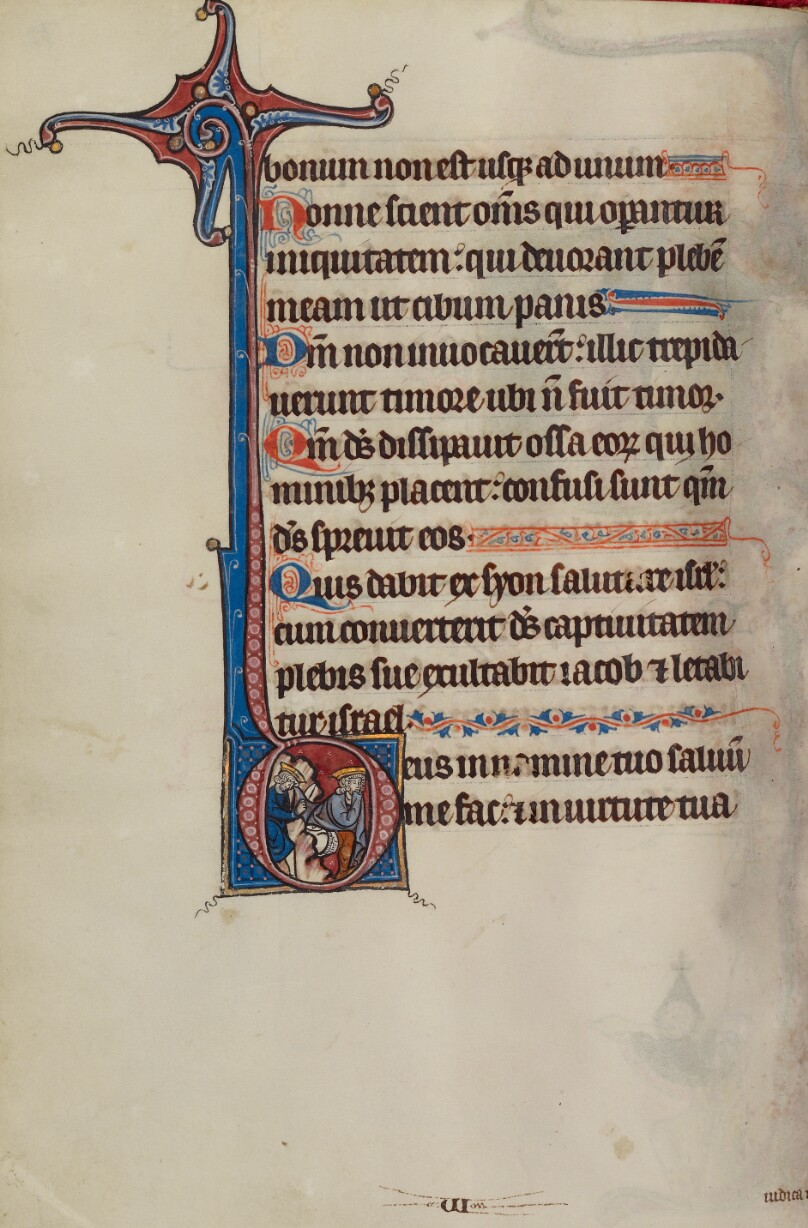 bonum non est usq; ad unum
Nonne scient om̄s qui op̄antur
iniquitatem: qui deuorant plebē
meam ut cibum panis
Dm̄ non inuocauer̄t: illic trepida
uerunt timore ubi n̄ fuit timor.
Qm̄ ds̄ dissipauit ossa eorꝝ qui ho
minibꝫ placent: confusi sunt qm̄
ds̄ spreuit eos.
Quis dabit ex syon salutare isrl̄:
cum conuerterit ds̄ captiuitatem
plebis sue exultabit iacob ⁊ letabi
tur israel.
Deus in nomine tuo saluū
me fac: ⁊ in uirtute tua
iudica